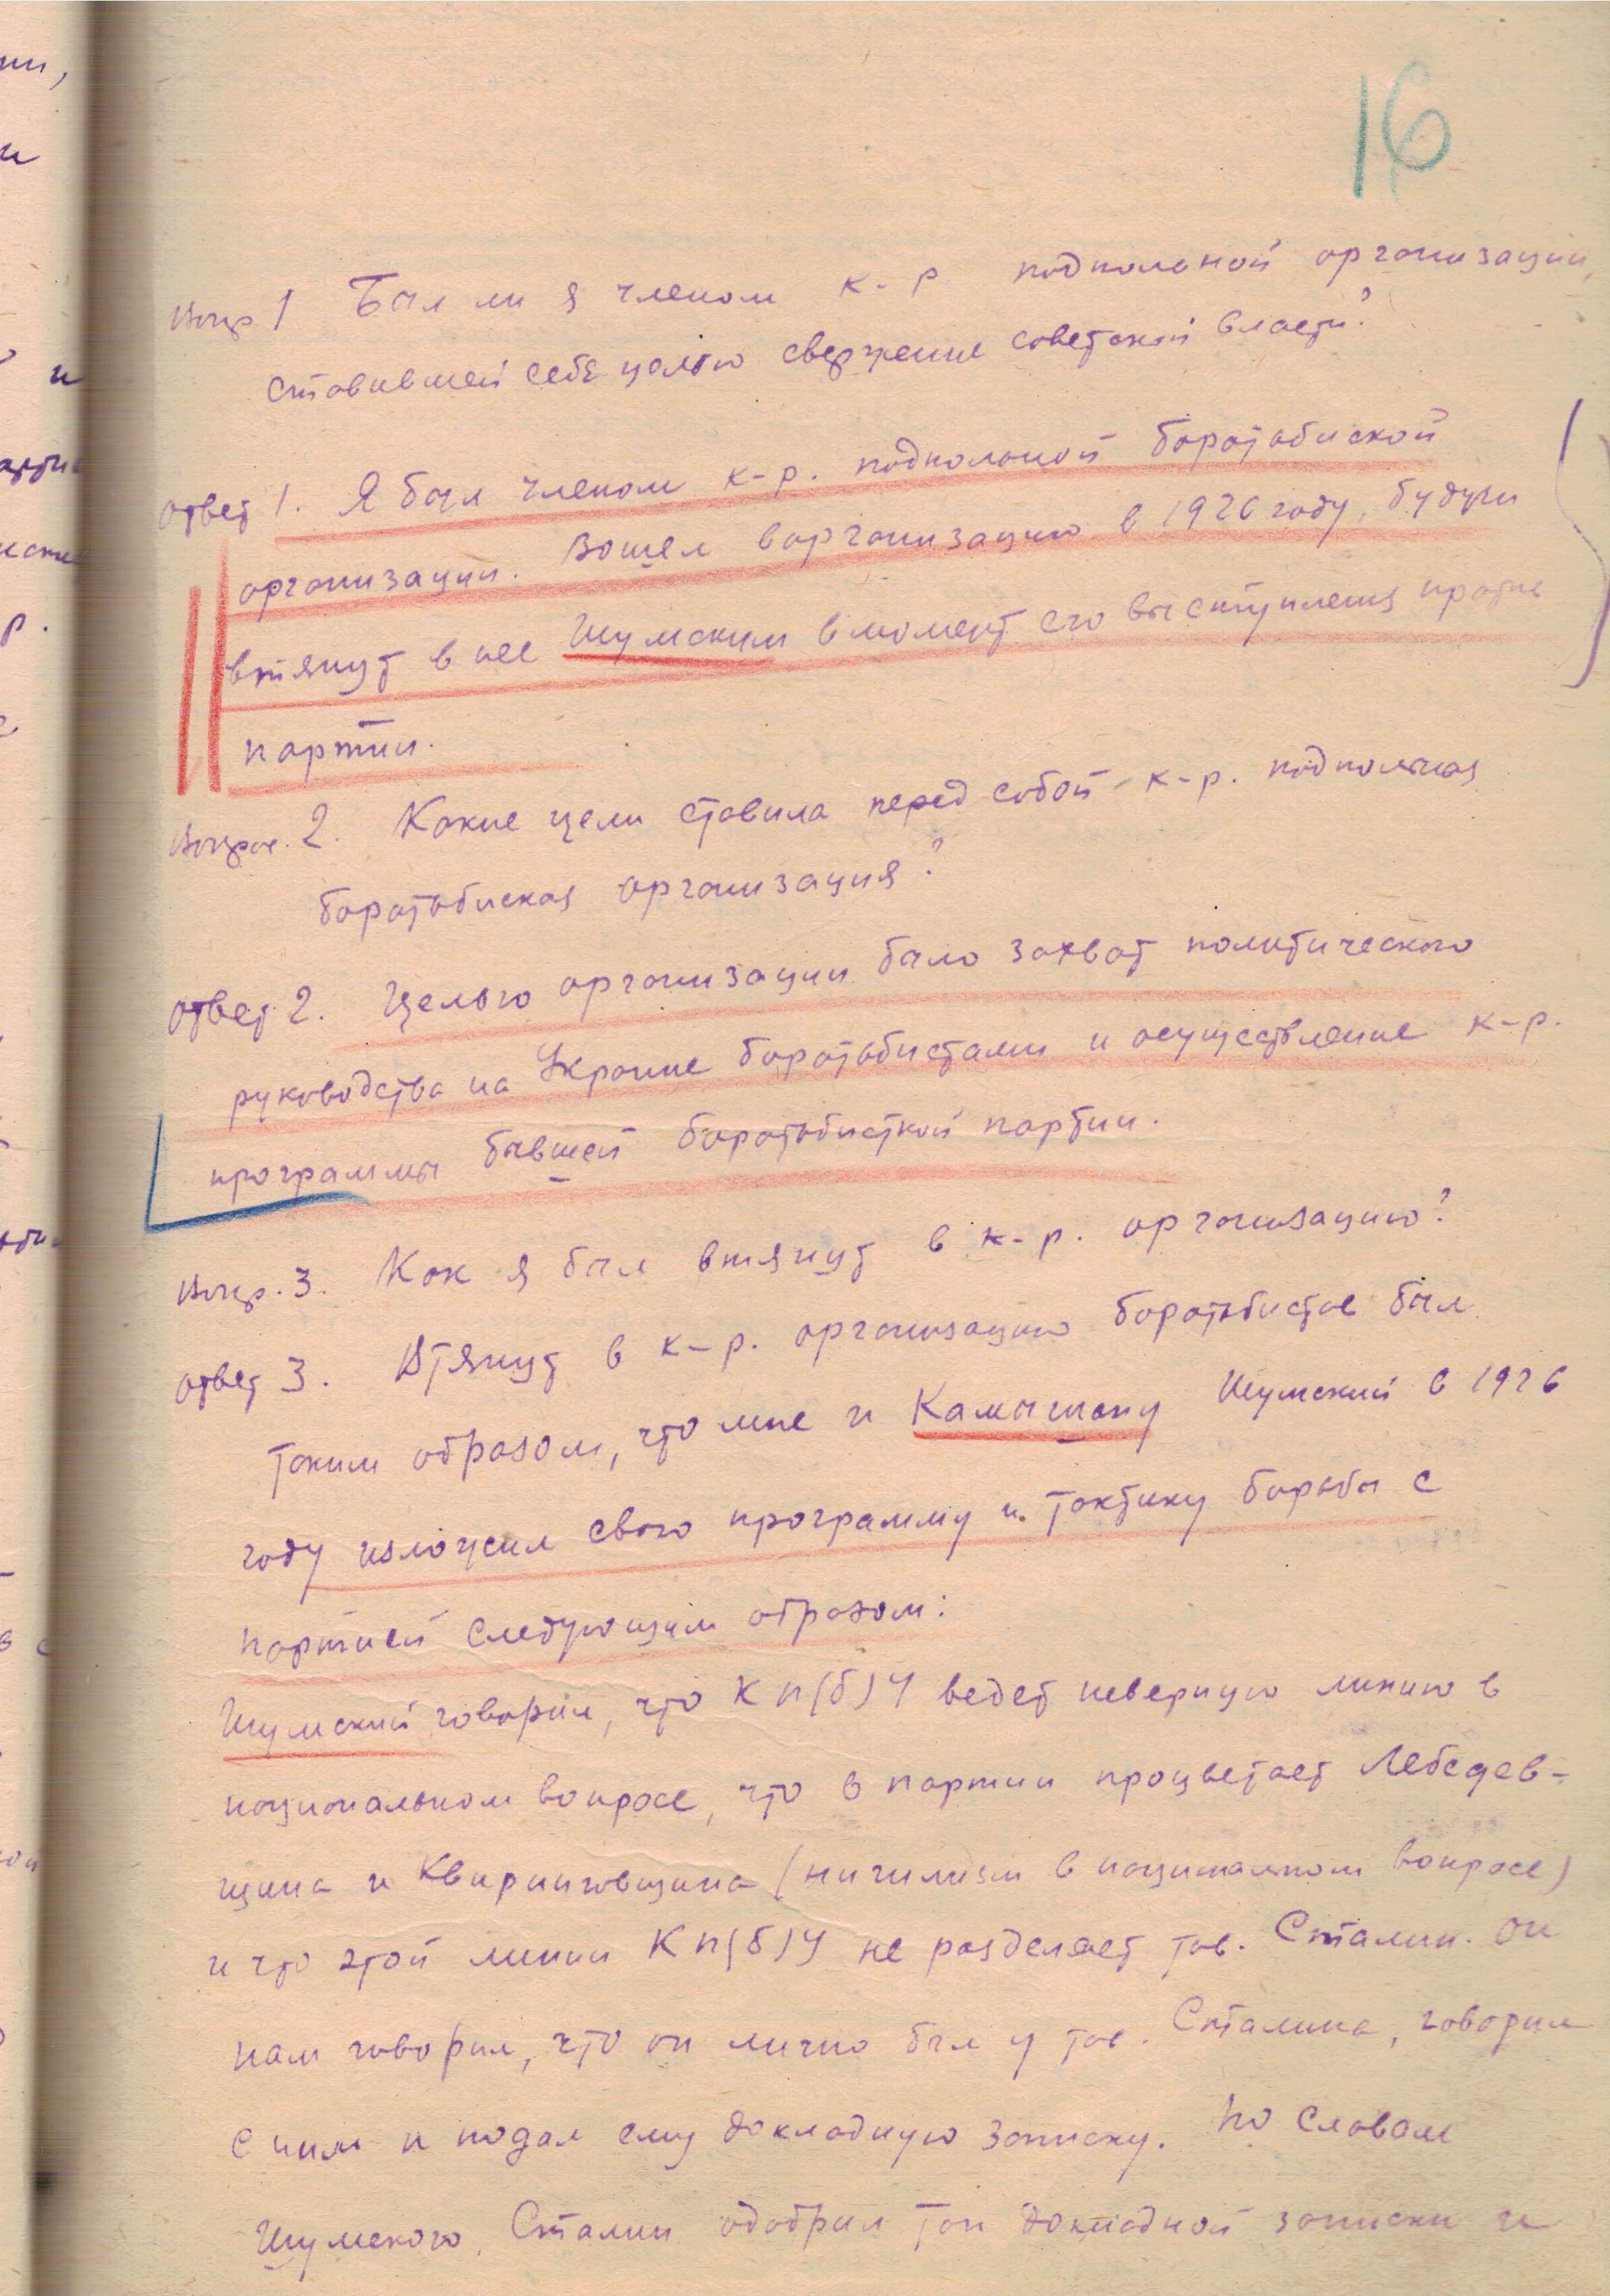 16
Вопр 1 Был ли я членом к-р подпольной организации,
ставившей себе целью свержение советской власти?
Ответ 1. Я был членом к-р. подпольной боротьбиской
организации. Вошел в организацию в 1926 году, будучи
втянут в нее Шумским в момент его выступления против
партии.
Вопрос. 2. Какие цели ставила перед собой к-р. подпольная
боротьбиская организация?
Ответ 2. Целью организации было захват политического
руководства на Украине боротьбистами и осуществление к-р.
программы бывшей боротьбисткой партии.
Вопр. 3. Как я был втянут в к-р. организацию?
Ответ 3. Втянут в к-р. организацию боротьбистов был
таким образом, что мне и Камышану Шумский в 1926
году изложил свою программу и тактику борьбы с
партией следующим образом:
Шумский говорил, что КП(б)У ведет неверную линию в
национальном вопросе, что в партии процветает Лебедев-
щина и Квиринговщина (нигилизм в национальном вопросе)
и что этой линии КП(б)У не разделяет тов. Сталин. Он
нам говорил, что он лично был у тов. Сталина, говорил
с ним и подал ему докладную записку. По словам
Шумского, Сталин одобрил тон докладной записки и